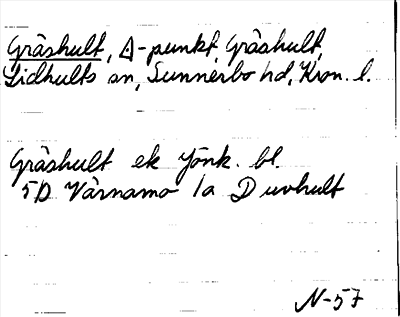 Gråshult, ∆-punkt, Gråshult,
Lidhults sn, Sunnerbo hd, Kron. l.
Gråshult ek Jönk. bl.
5D Värnamo 1a Duvhult
N-57